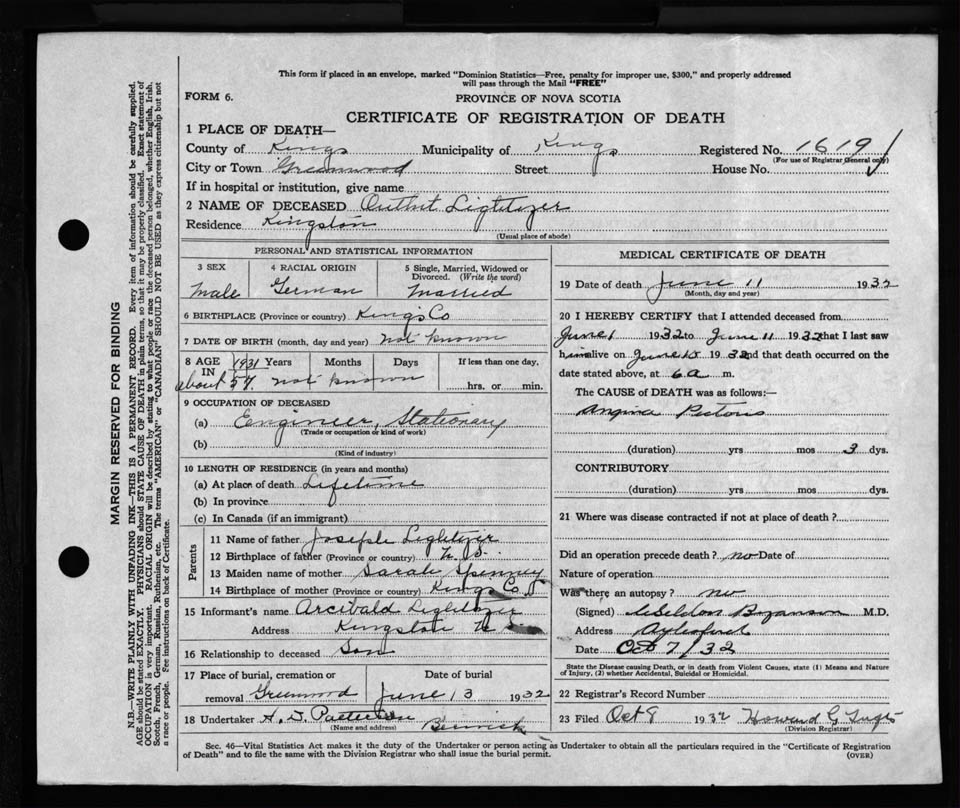 This form if placed in an envelope, marked "Dominion Statistics—Free, penalty for improper use, $300," and properly addressed
will pass through the Mail "FREE"
FORM 6.
PROVINCE OF NOVA SCOTIA
CERTIFICATE OF REGISTRATION OF DEATH
1 PLACE OF DEATH—
County of Kings Municipality of Kings Registered No. 1619
(For use of Registrar General only)
City or Town Greenwood Street House No.
If in hospital or institution, give name
2 NAME OF DECEASED Outhit Lightizer
Residence Kingston
(Usual place of abode)
PERSONAL AND STATISTICAL INFORMATION
3 SEX 4 RACIAL ORIGIN 5 Single, Married, Widowed or Divorced. (Write the word)
Male German Married
6 BIRTHPLACE (Province or country) Kings Co
7 DATE OF BIRTH (month, day and year) not known
8 AGE IN Years Months Days If less than one day,
about 57 not known hrs. or min.
9 OCCUPATION OF DECEASED
(a) Engineer, Stationary
(Trade or occupation or kind of work)
(b)
(Kind of industry)
10 LENGTH OF RESIDENCE (in years and months)
(a) At place of death Lifetime
(b) In province
(c) In Canada (if an immigrant)
Parents
11 Name of father Joseph Lightizer
12 Birthplace of father (Province or country) N. S.
13 Maiden name of mother Sarah Spinney
14 Birthplace of mother (Province or country) Kings Co
15 Informant's name Arcibald Lightizer
Address Kingston N. S.
16 Relationship to deceased Son
17 Place of burial, cremation or Date of burial
removal Greenwood June 13 1932
18 Undertaker A. D. Patterson Berwick
(Name and address)
MEDICAL CERTIFICATE OF DEATH
19 Date of death June 11 1932
(Month, day and year)
20 I HEREBY CERTIFY that I attended deceased from
June 1 1932 to June 11 1932 that I last saw
him alive on June 10 1932 and that death occurred on the
date stated above, at 6 a m.
The CAUSE OF DEATH was as follows:—
Angina Pectoris
(duration) yrs mos 3 dys.
CONTRIBUTORY
(duration) yrs mos dys.
21 Where was disease contracted if not at place of death?
Did an operation precede death? no Date of
Nature of operation
Was there an autopsy? no
(Signed) Bezanson M.D.
Address Aylesford
Date Oct 7/32
State the Disease causing Death, or in death from Violent Causes, state (1) Means and Nature
of Injury, (2) whether Accidental, Suicidal or Homicidal.
22 Registrar's Record Number
23 Filed Oct 8 1932 Howard G
(Division Registrar)
Sec. 46—Vital Statistics Act makes it the duty of the Undertaker or person acting as Undertaker to obtain all the particulars required in the "Certificate of Registration
of Death" and to file the same with the Division Registrar who shall issue the burial permit.
(OVER)
MARGIN RESERVED FOR BINDING
N.B.—WRITE PLAINLY WITH UNFADING INK—THIS IS A PERMANENT RECORD. Every item of information should be carefully supplied.
AGE should be stated EXACTLY. PHYSICIANS should STATE CAUSE OF DEATH in plain terms, so that it may be properly classified. Exact statement of
OCCUPATION is very important. RACIAL ORIGIN will be described by stating to what people or race the deceased person belonged, whether English, Irish,
Scotch, French, German, Russian, Ruthenian, etc. The terms "AMERICAN" or "CANADIAN" SHOULD NOT BE USED as they express citizenship but not
a race or people. See instructions on back of Certificate.